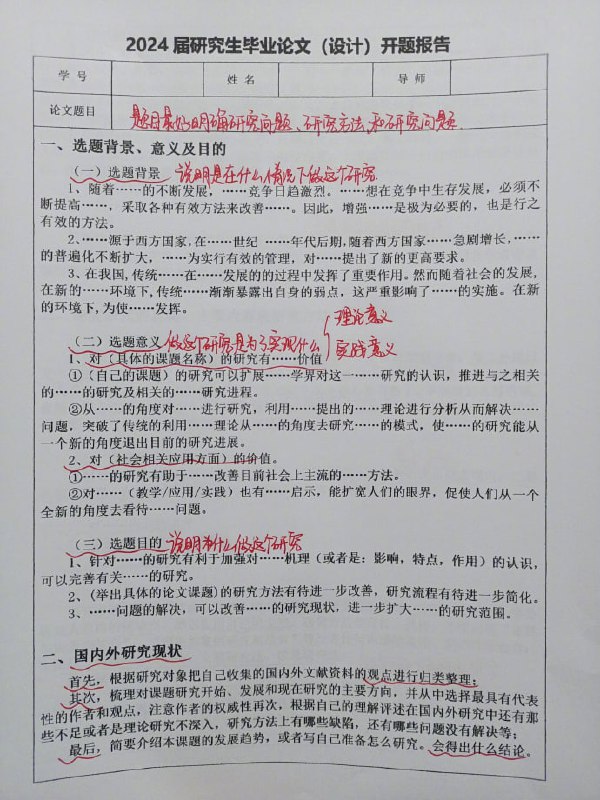 2024届研究生毕业论文（设计）开题报告
学号 姓名 导师
论文题目 题目最好明确研究问题、研究方法、和研究问题
一、选题背景、意义及目的
（一）选题背景 说明是在什么情况下做这个研究
1、随着……的不断发展，……竞争日趋激烈。……想在竞争中生存发展，必须不
断提高……，采取各种有效方法来改善……。因此，增强……是极为必要的，也是行之
有效的方法。
2、……源于西方国家，在……世纪 ……年代后期，随着西方国家……急剧增长，……
的普遍化不断扩大，……为实行有效的管理，对……提出了新的更高要求。
3、在我国，传统……在……发展的的过程中发挥了重要作用。然而随着社会的发展，
在新的……环境下，传统……渐渐暴露出自身的弱点，这严重影响了……的实施。在新
的环境下，为使……发挥。
（二）选题意义 做这个研究是为了实现什么 { 理论意义
实践意义
1、对（具体的课题名称）的研究有……价值
①（自己的课题）的研究可以扩展……学界对这一……研究的认识，推进与之相关
的……的研究及相关的……研究进程。
②从……的角度对……进行研究，利用……提出的……理论进行分析从而解决……
问题，突破了传统的利用……理论从……的角度去研究……的模式，使……的研究能从
一个新的角度退出目前的研究进展。
2、对（社会相关应用方面）的价值。
①……的研究有助于……改善目前社会上主流的……方法。
②对……（教学/应用/实践）也有……启示，能扩宽人们的眼界，促使人们从一个
全新的角度去看待……问题。
（三）选题目的 说明为什么做这个研究
1、针对……的研究有利于加强对……机理（或者是：影响，特点，作用）的认识，
可以完善有关……的研究。
2、（举出具体的论文课题）的研究方法有待进一步改善，研究流程有待进一步简化。
3、……问题的解决，可以改善……的研究现状，进一步扩大……的研究范围。
二、国内外研究现状
首先，根据研究对象把自己收集的国内外文献资料的观点进行归类整理；
其次，梳理对课题研究开始、发展和现在研究的主要方向，并从中选择最具有代表
性的作者和观点，注意作者的权威性再次，根据自己的理解评述在国内外研究中还有那
些不足或者是理论研究不深入，研究方法上有哪些缺陷，还有哪些问题没有解决等；
最后，简要介绍本课题的发展趋势，或者写自己准备怎么研究。会得出什么结论。